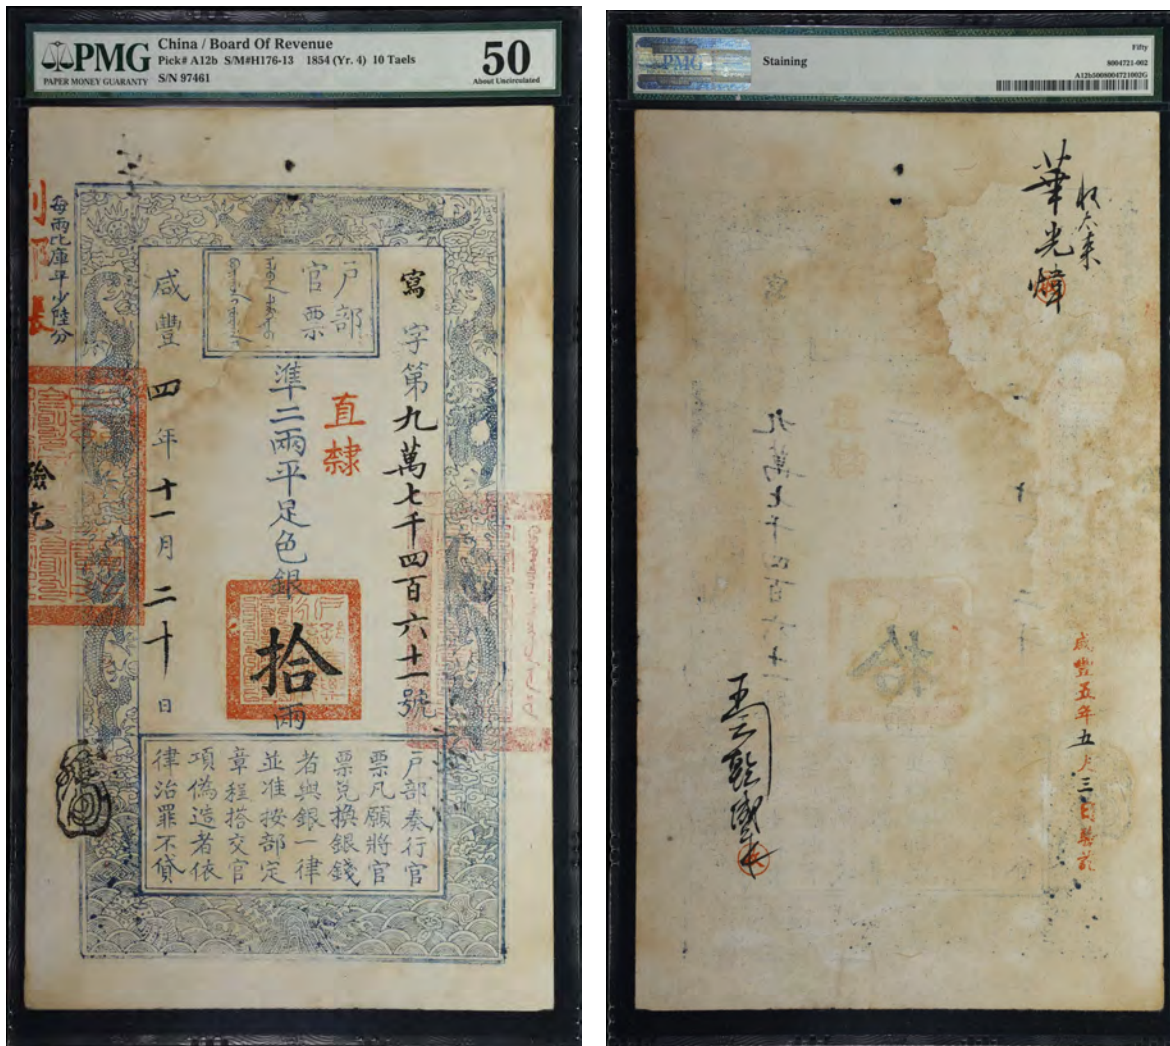 PMG
PAPER MONEY GUARANTY
China / Board Of Revenue
Pick# A12b S/M#H176-13 1854 (Yr. 4) 10 Taels
S/N 97461
50
About Uncirculated
戶部
官票
寫字第九萬七千四百六十一號
直隸
準二兩平足色銀拾兩
咸豐四年十一月二十日
每兩比庫平少陸分
戶部奏行官
票凡願將官
票兌換銀錢
者與銀一律
並准按部定
章程搭交官
項偽造者依
律治罪不貸
PMG
Staining
Fifty
8004721-002
A12b5008004721002G
華光煒
咸豐五年五月三日